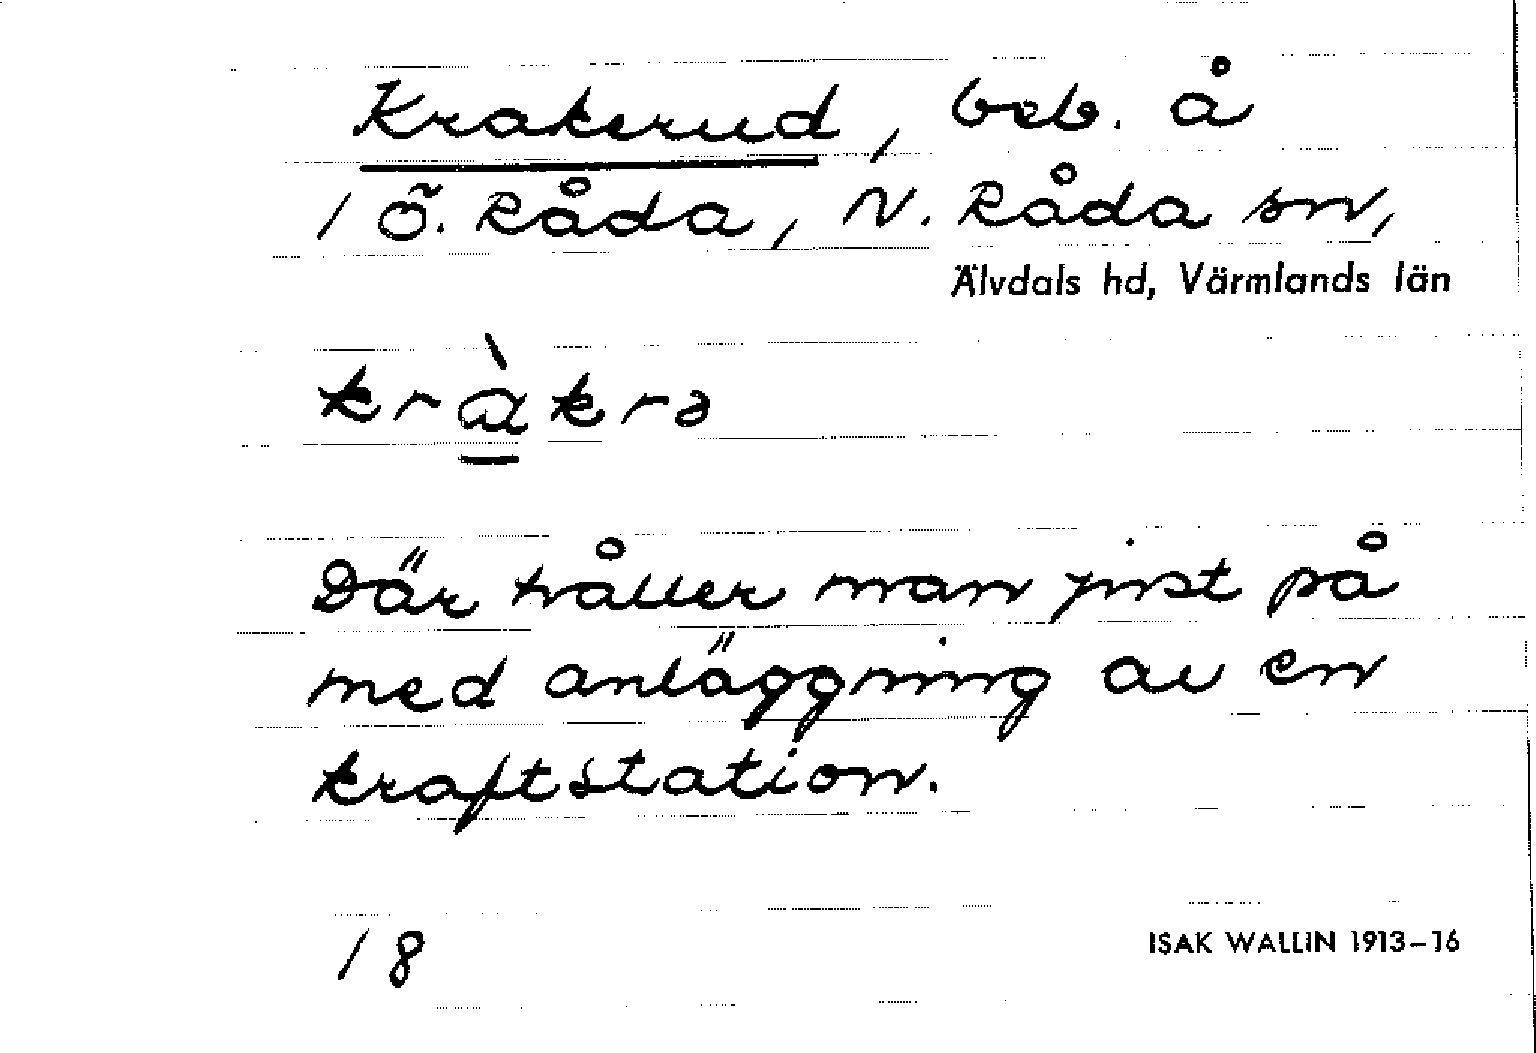 Krakerud, beb. å
1 Ö. Råda, N. Råda sn,
Älvdals hd, Värmlands län
kràkrə
Där håller man just på
med anläggning av en
kraftstation.
18
ISAK WALLIN 1913–16